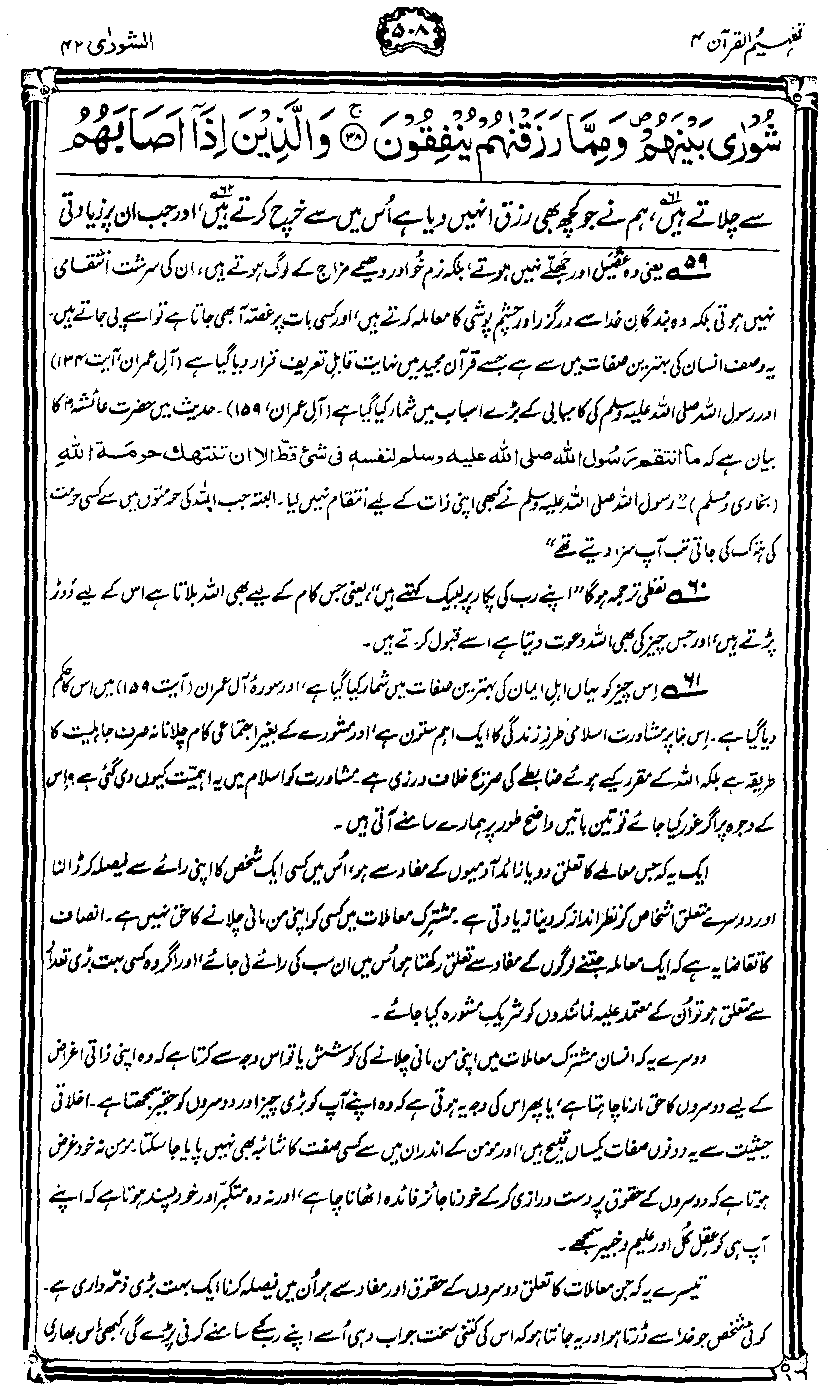 تفہیم القرآن ۴
۵۰۸
الشورٰی ۴۲
شُوْرٰى بَيْنَهُمْ ۪ وَمِمَّا رَزَقْنٰهُمْ يُنْفِقُوْنَ ۚ ﴿۳۸﴾ وَالَّذِيْنَ اِذَاۤ اَصَابَهُمُ
سے چلاتے ہیں۶۱، ہم نے جو کچھ بھی رزق انہیں دیا ہے اُس میں سے خرچ کرتے ہیں۶۲، اور جب ان پر زیادتی
۵۹ یعنی وہ غصیل اور جھلّے نہیں ہوتے، بلکہ نرم خُو اور دھیمے مزاج کے لوگ ہوتے ہیں، ان کی سرشت انتقامی
نہیں ہوتی بلکہ وہ بندگانِ خدا سے درگزر اور چشم پوشی کا معاملہ کرتے ہیں، اور کسی بات پر غصّہ آ بھی جاتا ہے تو اسے پی جاتے ہیں۔
یہ وصف انسان کی بہترین صفات میں سے ہے جسے قرآن مجید میں نہایت قابلِ تعریف قرار دیا گیا ہے (آلِ عمران، آیت ۱۳۴)
اور رسول اللہ صلی اللہ علیہ وسلم کی کامیابی کے بڑے اسباب میں شمار کیا گیا ہے (آلِ عمران، ۱۵۹)۔ حدیث میں حضرت عائشہؓ کا
بیان ہے کہ ما انتقم رسول الله صلی الله علیه وسلم لنفسه فی شئ قطّ الا ان تنتهك حرمة الله
(بخاری و مسلم) ”رسول اللہ صلی اللہ علیہ وسلم نے کبھی اپنی ذات کے لیے انتقام نہیں لیا۔ البتہ جب اللہ کی حرمتوں میں سے کسی حرمت
کی ہتک کی جاتی تب آپ سزا دیتے تھے“
۶۰ لفظی ترجمہ ہوگا ”اپنے رب کی پکار پر لبیک کہتے ہیں“، یعنی جس کام کے لیے بھی اللہ بلاتا ہے اس کے لیے دَوڑ
پڑتے ہیں، اور جس چیز کی بھی اللہ دعوت دیتا ہے اسے قبول کرتے ہیں۔
۶۱ اِس چیز کو یہاں اہلِ ایمان کی بہترین صفات میں شمار کیا گیا ہے، اور سورۂ آل عمران (آیت ۱۵۹) میں اس کا حکم
دیا گیا ہے۔ اِس بنا پر مشاورت اسلامی طرزِ زندگی کا ایک اہم ستون ہے، اور مشورے کے بغیر اجتماعی کام چلانا نہ صرف جاہلیت کا
طریقہ ہے بلکہ اللہ کے مقرر کیے ہوئے ضابطے کی صریح خلاف ورزی ہے۔ مشاورت کو اسلام میں یہ اہمیّت کیوں دی گئی ہے؟ اِس
کے وجوہ پر اگر غور کیا جائے تو تین باتیں واضح طور پر ہمارے سامنے آتی ہیں۔
ایک یہ کہ جس معاملے کا تعلق دو یا زائد آدمیوں کے مفاد سے ہو، اُس میں کسی ایک شخص کا اپنی رائے سے فیصلہ کر ڈالنا
اور دوسرے متعلق اشخاص کو نظر انداز کر دینا زیادتی ہے۔ مشترک معاملات میں کسی کو اپنی من مانی چلانے کا حق نہیں ہے۔ انصاف
کا تقاضا یہ ہے کہ ایک معاملہ جتنے لوگوں کے مفاد سے تعلق رکھتا ہو اُس میں ان سب کی رائے لی جائے، اور اگر وہ کسی بہت بڑی تعداد
سے متعلق ہو تو اُن کے معتمد علیہ نمائندوں کو شریکِ مشورہ کیا جائے۔
دوسرے یہ کہ انسان مشترک معاملات میں اپنی من مانی چلانے کی کوشش یا تو اس وجہ سے کرتا ہے کہ وہ اپنی ذاتی اغراض
کے لیے دوسروں کا حق مارنا چاہتا ہے، یا پھر اس کی وجہ یہ ہوتی ہے کہ وہ اپنے آپ کو بڑی چیز اور دوسروں کو حقیر سمجھتا ہے۔ اخلاقی
حیثیت سے یہ دونوں صفات یکساں قبیح ہیں، اور مومن کے اندر ان میں سے کسی صفت کا شائبہ بھی نہیں پایا جا سکتا۔ مومن نہ خود غرض
ہوتا ہے کہ دوسروں کے حقوق پر دست درازی کر کے خود ناجائز فائدہ اٹھانا چاہے، اور نہ وہ متکبّر اور خود پسند ہوتا ہے کہ اپنے
آپ ہی کو عقلِ کُل اور علیم و خبیر سمجھے۔
تیسرے یہ کہ جن معاملات کا تعلق دوسروں کے حقوق اور مفاد سے ہو اُن میں فیصلہ کرنا ایک بہت بڑی ذمّہ داری ہے۔
کوئی شخص جو خدا سے ڈرتا ہو اور یہ جانتا ہو کہ اس کی کتنی سخت جواب دہی اُسے اپنے رب کے سامنے کرنی پڑے گی، کبھی اس بھاری